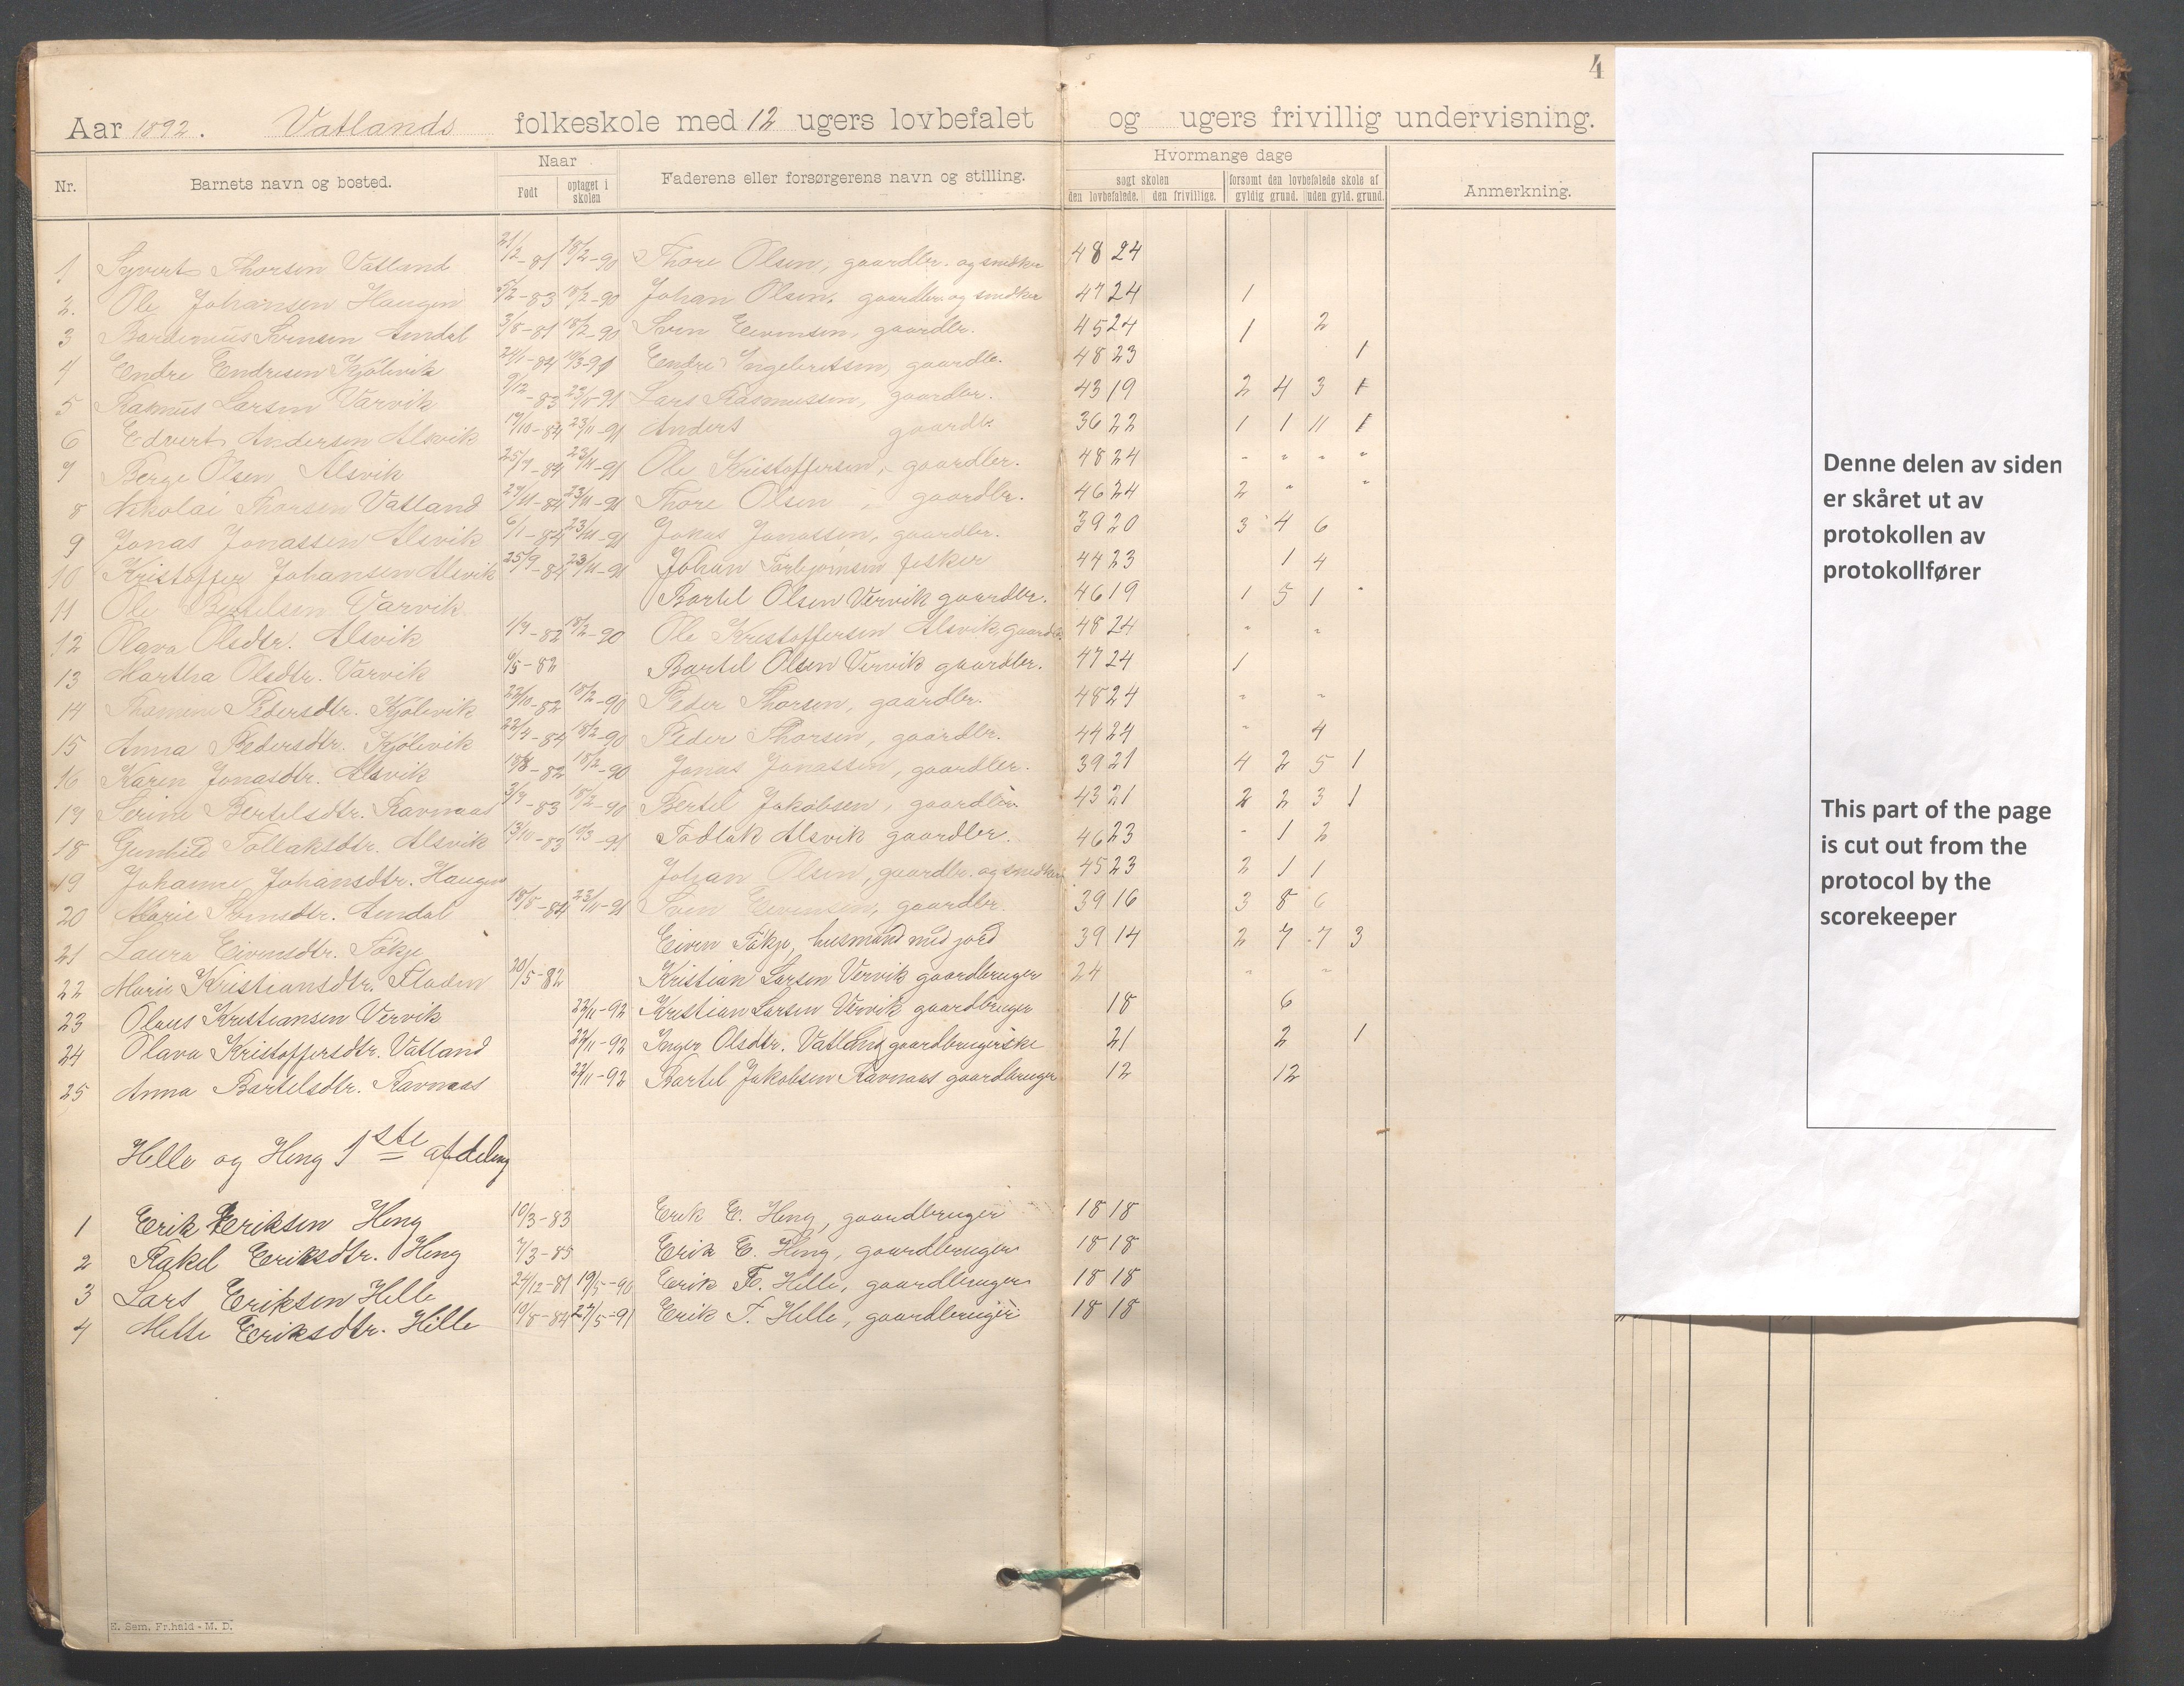 4
Aar 1892. Vatlands folkeskole med 12 ugers lovbefalet og ugers frivillig undervisning.
Nr. Barnets navn og bosted. Naar Født optaget i skolen Faderens eller forsørgerens navn og stilling. Hvormange dage søgt skolen den lovbefalede. den frivillige. forsømt den lovbefalede skole af gyldig grund. uden gyld. grund. Anmerkning.
1 Syvert Thorsen Vatland 21/2-81 18/2-90 Thore Olsen, gaardbr. og snedker 48 24
2. Ole Johansen Haugen 5/2-83 18/2-90 Johan Olsen, gaardbr. og snedker 47 24 1
3 Svensen Amdal 3/8-81 18/2-90 Sven Eivensen, gaardbr. 45 24 1 2
4 Endre Endresen Kjølevik 24/1-84 19/3-91 Endre Ingebretsen, gaardbr. 48 23 1
5 Rasmus Larsen Varvik 9/12-83 23/11-91 Lars Rasmussen, gaardbr. 43 19 2 4 3 1
6 Edvert Andersen Alsvik 19/10-84 23/11-91 Anders gaardb. 36 22 1 1 11 1
7 Berge Olsen Alsvik 25/7-84 23/11-91 Ole Kristoffersen, gaardbr. 48 24 " " " "
8 Nikolai Thorsen Vatland 29/11-84 23/11-91 Thore Olsen, gaardbr. 46 24 2 " "
9 Jonas Jonassen Alsvik 6/1-84 23/11-91 Jonas Jonassen, gaardbr. 39 20 3 4 6
10 Kristoffer Johansen Alsvik 25/9-84 23/11-91 Johan Torbjørnsen fisker 44 23 1 4
11 Ole Bertelsen Varvik. Bartel Olsen Vervik gaardbr. 46 19 1 5 1 "
12 Olava Olsdtr. Alsvik 1/7-82 18/2-90 Ole Kristoffersen Alsvik, gaardb. 48 24 " "
13 Martha Olsdtr. Varvik 6/5-82 Bartel Olsen Vervik gaardbr. 47 24 1
14 Thomine Pedersdtr. Kjølevik 22/10-82 18/2-90 Peder Thorsen, gaardbr. 48 24 " "
15 Anna Pedersdtr. Kjølevik 22/7-84 18/2-90 Peder Thorsen, gaardbr. 44 24 " 4
16 Karen Jonasdtr. Alsvik 18/8-82 18/2-90 Jonas Jonassen, gaardbr. 39 21 4 2 5 1
17 Serine Bertelsdtr. Ravnaas 3/7-83 18/2-90 Bertel Jakobsen, gaardbr. 43 21 2 2 3 1
18 Gunhild Tollaksdtr. Alsvik 13/10-83 19/3-91 Tadlak Alsvik gaardbr. 46 23 " 1 2
19 Johanne Johansdtr. Haugen Johan Olsen, gaardbr. og snedker 45 23 2 1 1
20 Marie Svensdtr. Amdal 18/8-84 23/11-91 Sven Eivensen, gaardbr. 39 16 3 8 6
21 Laura Eivensdtr. Tøkje Eiven Tøkje, husmand med jord 39 14 2 7 7 3
22 Marie Kristiansdtr. Fladen 20/5-82 Kristian Larsen Vervik gaardbruger 24 " "
23 Olaus Kristiansen Vervik 22/11-92 Kristian Larsen Vervik gaardbruger 18 6
24 Olava Kristoffersdtr. Vatland 22/11-92 Inger Olsdtr. Vatland gaardbrugerske 21 2 1
25 Anna Bartelsdtr. Ravnaas 22/11-92 Bartel Jakobsen Ravnaas gaardbruger 12 12
Helle og Heng 1ste afdeling
1 Erik Eriksen Heng 10/3-83 Erik E. Heng, gaardbruger 18 18
2 Rakel Eriksdtr. Heng 7/3-85 Erik E. Heng, gaardbruger 18 18
3 Lars Eriksen Helle 24/12-81 19/5-90 Erik T. Helle, gaardbruger 18 18
4 Mette Eriksdtr. Helle 10/8-84 27/5-91 Erik T. Helle, gaardbruger 18 18
E. Sem, Fr.hald - M. D.
Denne delen av siden
er skåret ut av
protokollen av
protokollfører
This part of the page
is cut out from the
protocol by the
scorekeeper